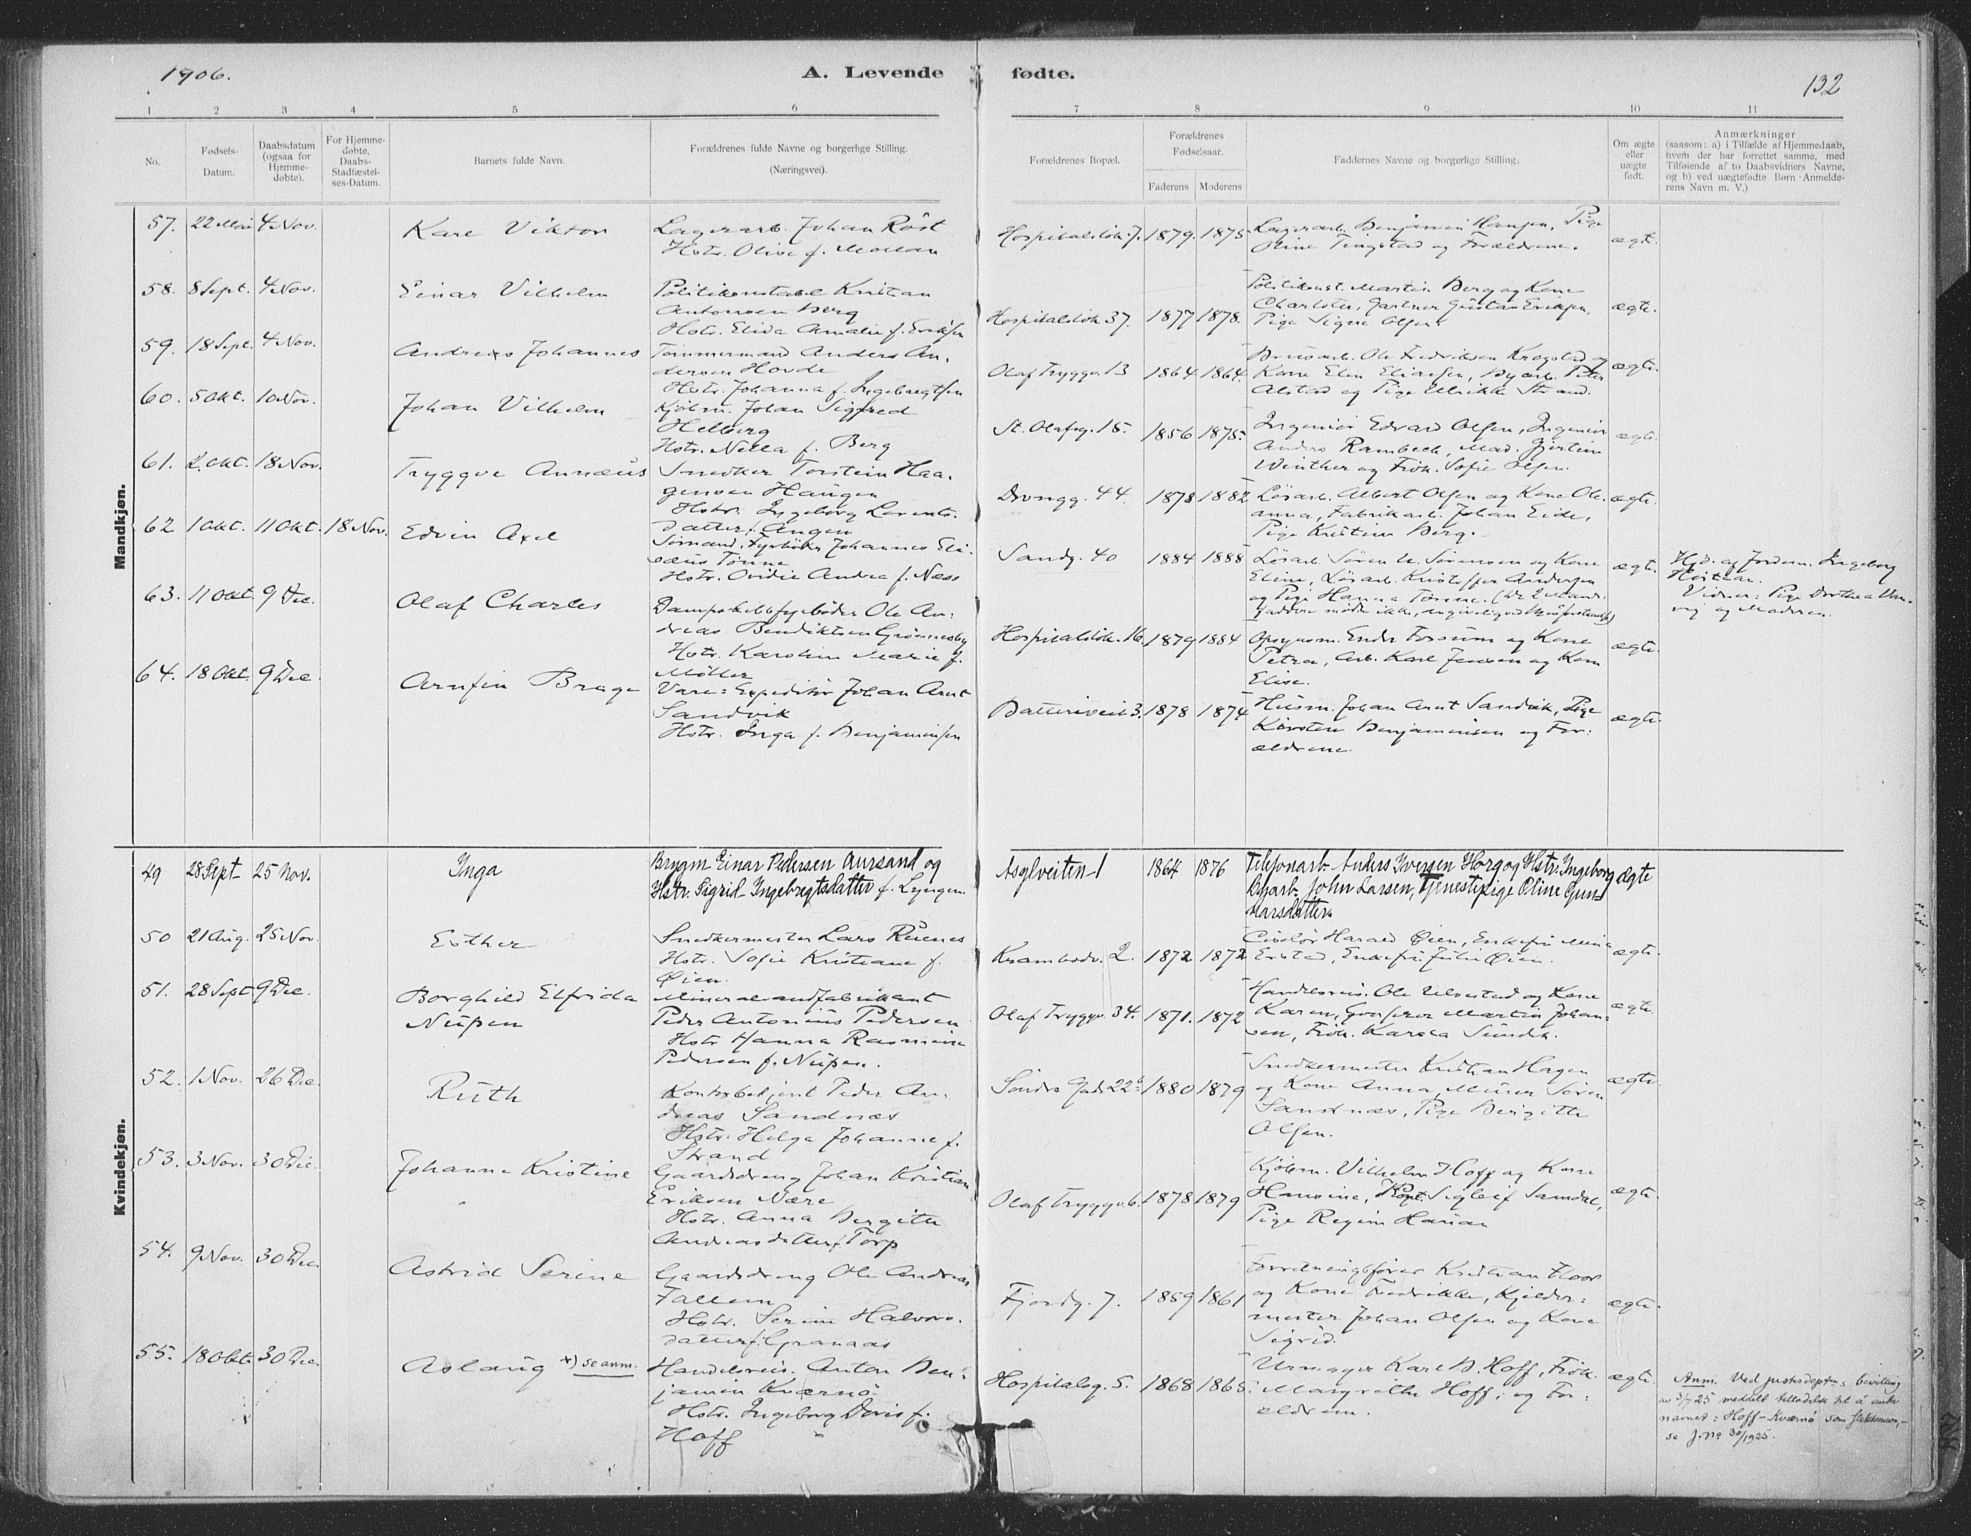 1906.
A. Levende fødte.
132
1 2 3 4 5 6 7 8 9 10 11
No.
Fødsels-
Datum.
Daabsdatum
(ogsaa for
Hjemme-
døbte).
For Hjemme-
døbte,
Daabs-
Stadfæstel-
ses-Datum.
Barnets fulde Navn.
Forældrenes fulde Navne og borgerlige Stilling.
(Næringsvei).
Forældrenes Bopæl.
Forældrenes
Fødselsaar.
Faderens Moderens
Faddernes Navne og borgerlige Stilling.
Om ægte
eller
uægte
født.
Anmærkninger
(saasom: a) i Tilfælde af Hjemmedaab,
hvem der har forrettet samme, med
Tilføiende af to Daabsvidners Navne,
og b) ved uægtefødte Børn Anmelde-
rens Navn m. V.)
Mandkjøn.
57. 22 Mai 4 Nov. Kare Viktor
Lagerarb. Johan Röst
Hstr. Olive f. Moman
Hospitalslök. 7. 1879. 1875
Lagerarb. Benjamin Hansen, Pige
Oline Tingstad og Forældrene.
ægte.
58. 8 Sept. 4 Nov. Einar Vilhelm
Politikonstabel Kristian
Antonsen Berg
Hstr. Elida Amalie f. Eriksen
Hospitalslök 37. 1877 1878.
Politikonst. Martin Berg og Kone
Charlotte, Gartner Gustav Eriksen,
Pige Signe Olsen
ægte.
59. 18 Sept. 4 Nov. Andreas Johannes
Tømmermand Anders An-
dersen Hovde
Hstr. Johanna f. Ingebregtsen
Olaf Tryggv. 13 1864 1864.
Brusarb. Ole Fredriksen Krogstad og
Kone Elen Eliassen, Byarb. Peter
Alstad og Pige Ulrikke Strand.
ægte.
60. 5 Okt. 10 Nov. Johan Vilhelm
Kjøbm. Johan Sigfred
Helberg
Hstr. Nella f. Berg
St. Olafsg. 15. 1856 1875.
Ingeniør Edvard Olsen, Ingeniør
Anders Rambech, Mad. Gjertin
Winther og Frøk. Sofie Olsen.
ægte.
61. 2 Okt. 18 Nov. Tryggve Annæus
Snedker Torstein Haa-
gensen Haugen
Hstr. Ingeborg Lorents-
datter f. Angen
Drongg. 44. 1878 1882
Lösarb. Albert Olsen og Kone Ole-
anna, Fabrikarb. Johan Eide,
Pige Kristine Berg.
ægte.
62 1 Okt. 11 Okt. 18 Nov. Edvin Axel
Sømand, Fyrbøter Johannes Eli-
sæus Tønne
Hstr. Ovidie Andrea f. Næss
Sandg. 40 1884 1888
Lösarb. Sören U. Sörensen og Kone
Eline, Lösarb. Kristoffer Andersen
og Pige Hanna Tønne.
ægte.
Hjd. af Jordem. Ingeborg
Vidner: Pige Dorthea
og Moderen.
63. 11 Okt 9 Dec. Olaf Charles
Dampskibsfyrbøder Ole An-
dreas Bendiktsen Grönnesby
Hstr. Karoline Marie f.
Möller
Hospitalslök. 16. 1879 1884
Opsynsm. Endr. Forsum og Kone
Petra, Arb. Karl Jensen og Kone
Elise.
ægte.
64. 18 Okt. 9 Dec. Arnfin Brage
Vare-Expeditör Johan Arnt
Sandvik
Hstr. Inga f. Benjaminsen
Batteriveit 3. 1878 1874
Husm. Johan Arnt Sandvik, Pige
Kirsten Benjaminsen og For-
ældrene.
ægte.
Kvindekjøn.
49 28 Sept 25 Nov. Inga
Brygm Einar Pedersen Aursand og
Hstr. Sigrid Ingebregtsdatter f. Lyngen
Asylveiten 1 1864 1876
Telefonarb. Anders Iversen Horg og Hstr. Ingeborg
Byarb. John Larsen, Tjenestpige Oline Gun-
narsdatter.
ægte
50 21 Aug. 25 Nov. Esther
Snedkermester Lars Reienes
Hstr. Sofie Kristiane f.
Öien.
Krambodv. 2. 1872 1872
Ciselör Harald Öien, Enkefru Mina
Erstad, Enkefr. Julie Öien.
ægte.
51. 28 Sept 9 Dec. Borghild Elfrida
Nüpen
Mineralvandfabrikant
Peder Antonius Pedersen
Hstr. Hanna Rasmine
Pedersen f. Nüpen.
Olaf Tryggv. 34. 1871. 1872
Handelsreis. Ole Ulvestad og Kone
Karen, Martin Johan-
sen, Frøk. Karda Sundt.
ægte.
52. 1 Nov. 26 Dec. Ruth
Kontorbetjent Peder An-
dreas Sandnæs
Hstr. Helga Johanne f.
Strand
Söndre Gade 22b 1880 1879
Snedkermester Kristian Hagen
og Kone Anna, Murer Sören
Sandnæs, Pige Bergitte
Olsen.
ægte.
53. 3 Nov. 30 Dec. Johanna Kristine
Gaardsdreng Johan Kristian
Eriksen Nære
Hstr. Anna Bergitte
Andreasdatter f. Torp
Olaf Tryggv. 6. 1878 1879
Kjöbm. Vilhelm Hoff og Kone
Hansine, Kapt. Sigleif Samdal,
Pige Regine Hanan
ægte.
54. 9 Nov. 30 Dec. Astrid Serine
Gaardsdreng Ole Andreas
Fallem
Hstr. Serine Halvors-
datter f. Granaas
Fjordg. 7. 1859 1861
Forretningsfører Kristian Floor
og Kone Fredrikke, Kjelder-
mester Johan Olsen og Kone
Sigrid.
ægte.
55. 18 Okt. 30 Dec. Aslaug *) se anm.
Handelsreis. Anton Ben-
jamin Kværnö
Hstr. Ingeborg Doris f.
Hoff
Hospitalsg. 5. 1868 1868.
Urmager Karl B. Hoff, Frøk.
Margrethe Hoff, og For-
ældrene.
ægte.
Anm. Ved justisdeptets bevilling
av 3/7 25 meddelt tilladelse til å anta
navnet: Hoff-Kværnö som slektsnavn,
se J.No 30/1925.